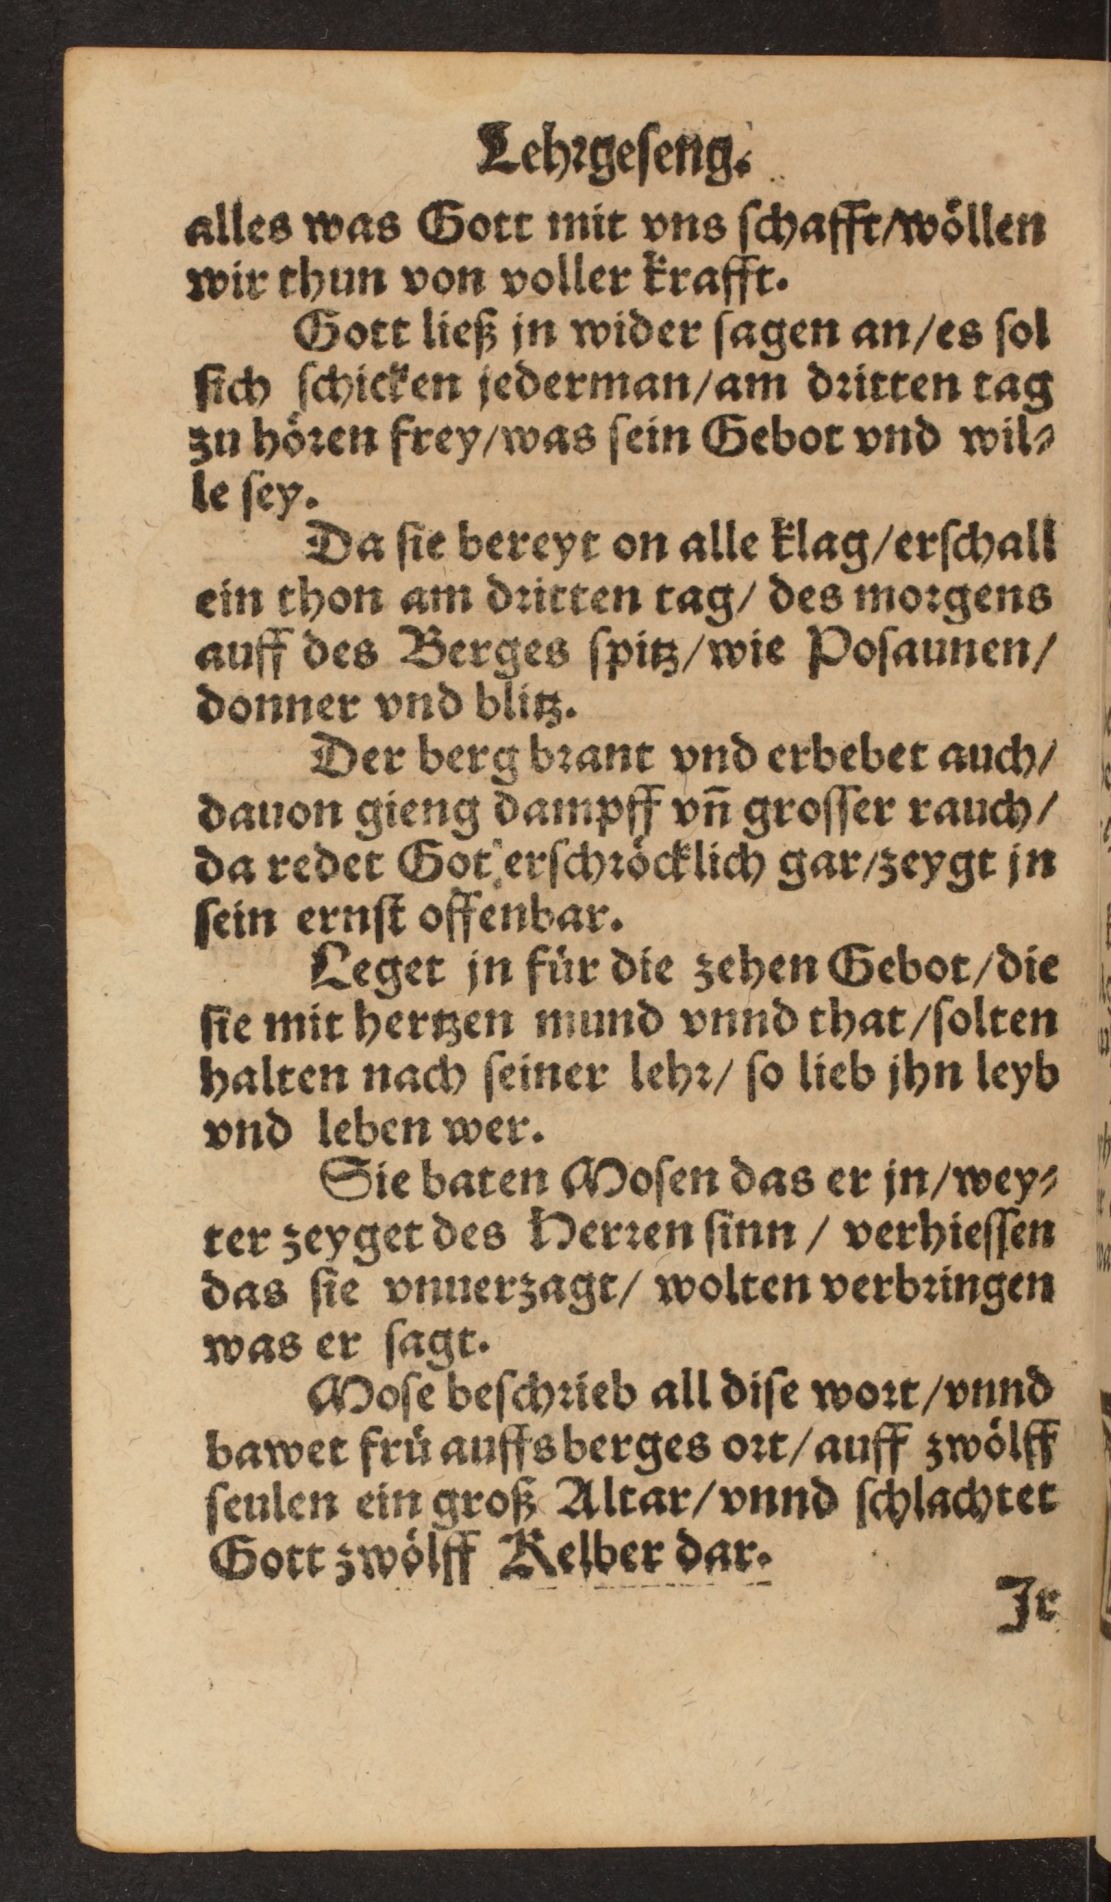 Lehrgeſeng.
alles was Gott mit vns ſchafft/wöllen
wir thun von voller krafft.
Gott ließ jn wider ſagen an/es ſol
ſich ſchicken jederman/am dritten tag
zu hören frey/was ſein Gebot vnd wil⸗
le ſey.
Da ſie bereyt on alle klag/erſchall
ein thon am dritten tag/ des morgens
auff des Berges ſpitz/wie Poſaunen/
donner vnd blitz.
Der berg brant vnd erbebet auch/
dauon gieng dampff vn̄ groſſer rauch/
da redet Got erſchröcklich gar/zeygt jn
ſein ernſt offenbar.
Leget jn für die zehen Gebot/die
ſie mit hertzen mund vnnd that/ſolten
halten nach ſeiner lehr/ ſo lieb jhn leyb
vnd leben wer.
Sie baten Moſen das er jn/wey⸗
ter zeyget des Herren ſinn / verhieſſen
das ſie vnuerzagt/ wolten verbringen
was er ſagt.
Moſe beſchrieb all diſe wort/vnnd
bawet frü auffs berges ort/auff zwölff
ſeulen ein groß Altar/vnnd ſchlachtet
Gott zwölff Kelber dar.
Ir